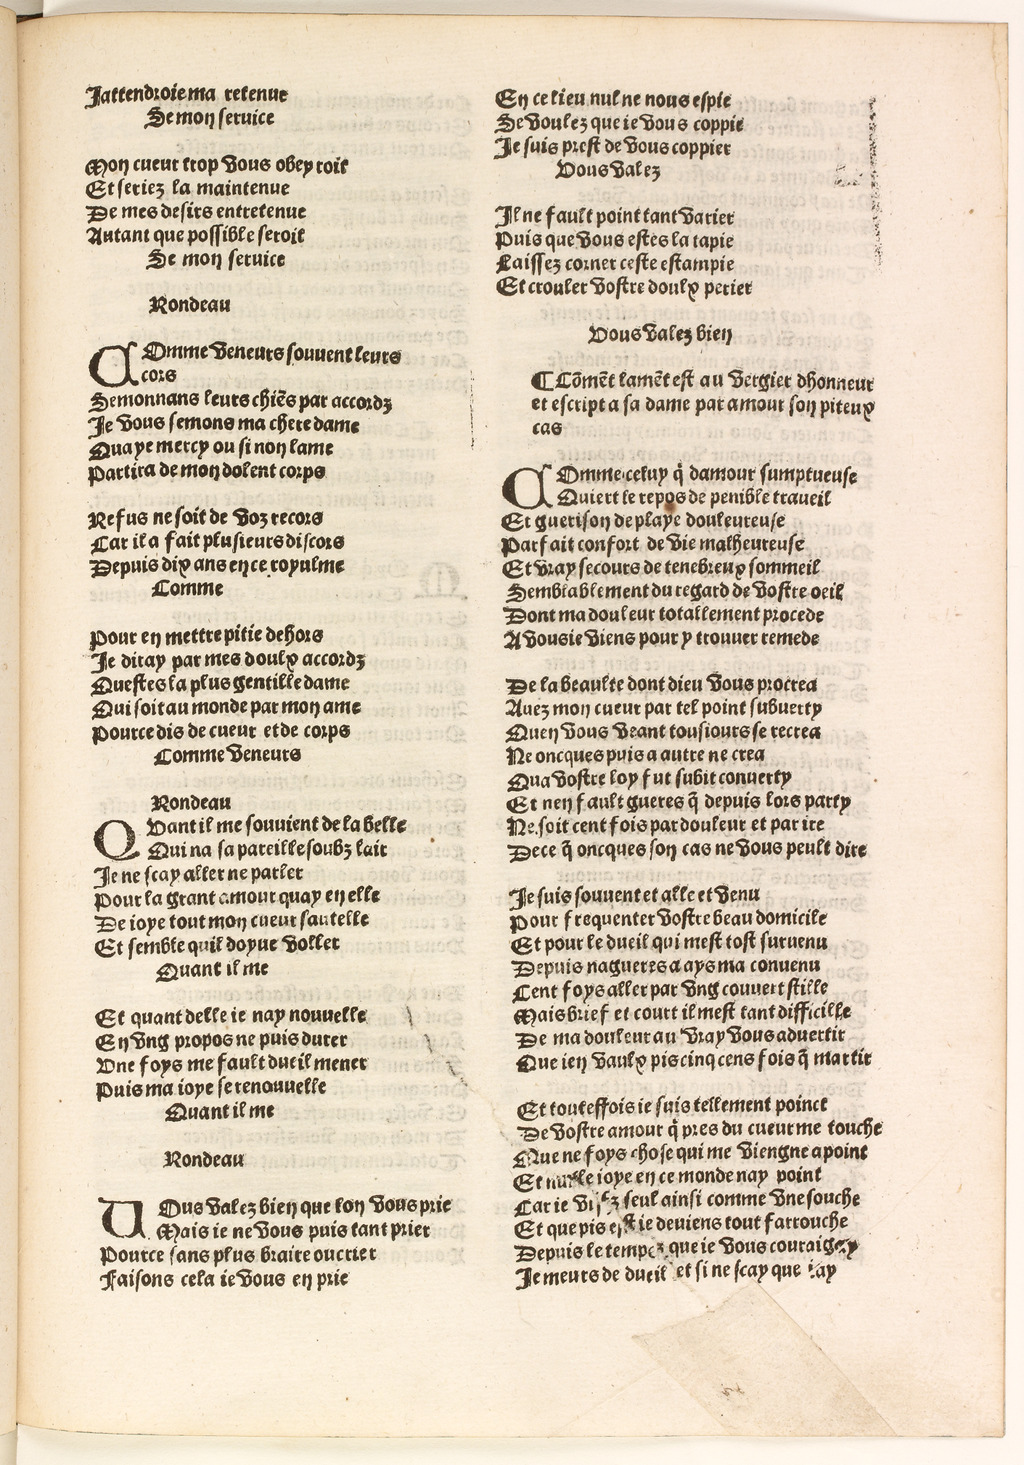 Jattendroie ma retenue
Se mon seruice
Mon cueur trop vous obeyroit
Et seriez la maintenue
De mes desirs entretenue
Autant que possible seroit
Se mon seruice
Rondeau
COmme veneurs souuent leurs
cors
Semonnans leurs chiẽs par accordz
Je vous semons ma chere dame
Quaye mercy ou si non lame
Partira de mon dolent corps
Refus ne soit de voz recors
Car il a fait plusieurs discors
Depuis dix ans en ce royulme
Comme
Pour en mettre pitie dehors
Je diray par mes doulx accordz
Questes la plus gentille dame
Qui soit au monde par mon ame
Pource dis de cueur et de corps
Comme veneurs
Rondeau
QVant il me souuient de la belle
Qui na sa pareille soubz lair
Je ne scay aller ne parler
Pour la grant amour quay en elle
De ioye tout mon cueur sautelle
Et semble quil doyue voller
Quant il me
Et quant delle ie nay nouuelle
En vng propos ne puis durer
Vne foys me fault dueil mener
Puis ma ioye se renouuelle
Quant il me
Rondeau
VOus valez bien que lon vous prie
Mais ie ne vous puis tant prier
Pource sans plus braire ou crier
Faisons cela ie vous en prie
En ce lieu nul ne nous espie
Se voulez que ie vous coppie
Je suis prest de vous coppier
Vous valez
Il ne fault point tant varier
Puis que vous estes la tapie
Laissez corner ceste estampie
Et crouler vostre doulx perier
Vous valez bien
¶ Cõmẽt lamẽt est au vergier dhonneur
et escript a sa dame par amour son piteux
cas
COmme celuy q̃ damour sumptueuse
Quiert le repos de penible traueil
Et guerison de playe douleureuse
Parfait confort de vie malheureuse
Et vray secours de tenebreux sommeil
Semblablement du regard de vostre oeil
Dont ma douleur totallement procede
A vous ie viens pour y trouuer remede
De la beaulte dont dieu vous procrea
Auez mon cueur par tel point subuerty
Quen vous veant tousiours se recrea
Ne oncques puis a autre ne crea
Qua vostre loy fut subit conuerty
Et nen fault gueres q̃ depuis lors party
Ne soit cent fois par douleur et par ire
De ce q̃ oncques son cas ne vous peult dire
Je suis souuent et alle et venu
Pour frequenter vostre beau domicile
Et pour le dueil qui mest tost suruenu
Depuis nagueres a ays ma conuenu
Cent foys aller par vng couuert stille
Mais brief et court il mest tant difficille
De ma douleur au vray vous aduertir
Que ien vaulx pis cinq cens fois q̃ martir
Et touteffois ie suis tellement poinct
De vostre amour q̃ pres du cueur me touche
Que ne foys chose qui me viengne a point
Et nulle ioye en ce monde nay point
Car ie vifz seul ainsi comme vne souche
Et que pis est ie deuiens tout farrouche
Depuis le temps que ie vous couraigay
Je meurs de dueil et si ne scay que iay